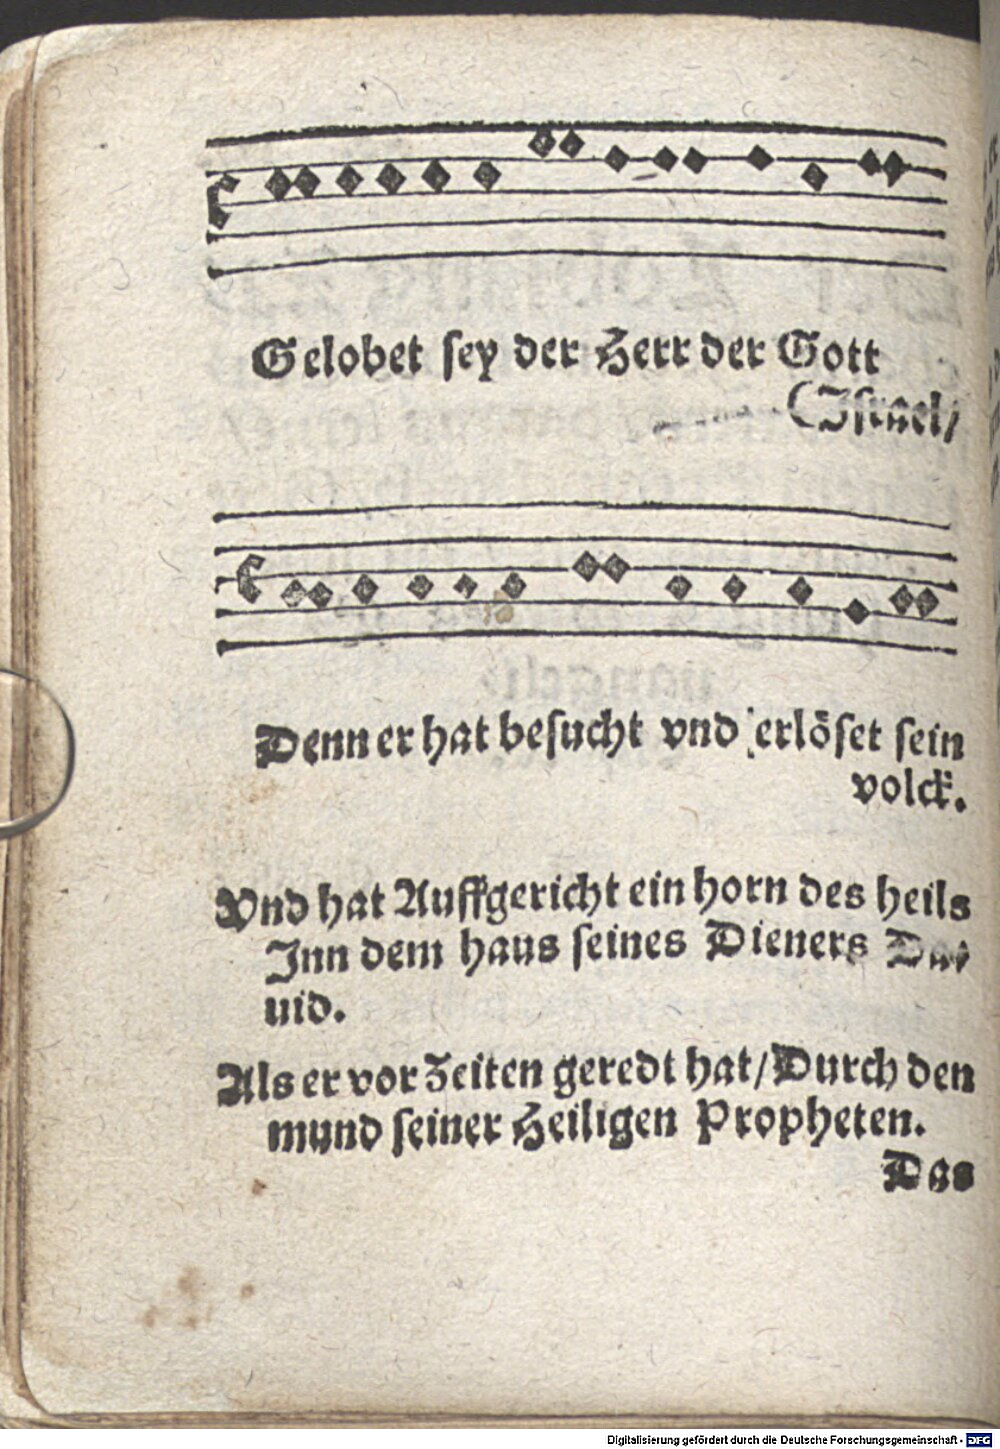 Gelobet ſey der Herr der Gott
(Iſrael/
Denn er hat beſucht vnd erlöſet ſein
volck.
Vnd hat Auffgericht ein horn des heils
Inn dem haus ſeines Dieners Da⸗
uid.
Als er vor Zeiten geredt hat/Durch den
mund ſeiner Heiligen Propheten.
Das
Digitalisierung gefördert durch die Deutsche Forschungsgemeinschaft - DFG